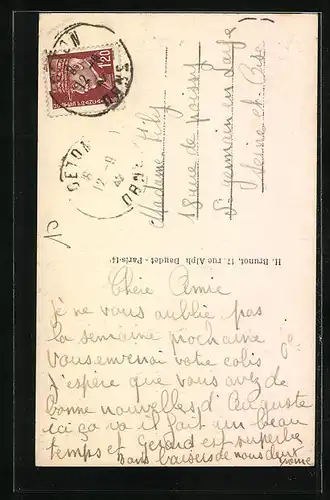 1F20
CETON
8
12-9
42
ORNE
Madame Fily
18 rue de poissy
St germain en Laye
Seine et Oise
H. Brunot, 17, rue Alph Daudet - Paris-14
Chere Amie
je ne vous aublie pas
la semaine prochaine
vous envenoi votre colis
j'espère que vous avez de
bonne nouvelles d'Auguste
ici ça va il fait un beau
temps et Gerard est superbe
bons baisers de nous deux